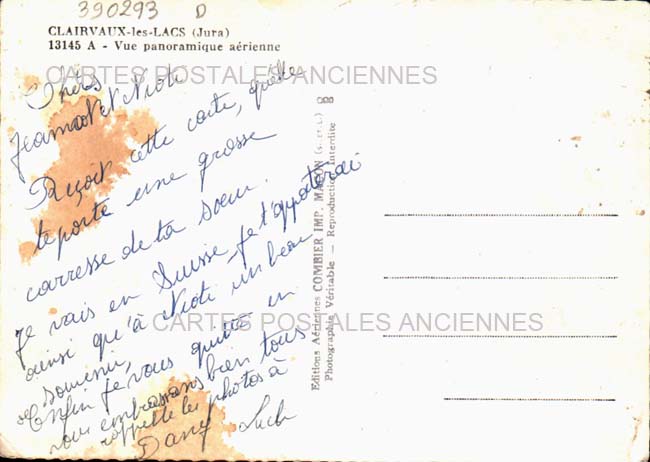 390293 D
CLAIRVAUX-les-LACS (Jura)
13145 A - Vue panoramique aérienne
CARTES POSTALES ANCIENNES
Chers
Jeannot et Nioti
Reçoit cette carte, qu'elle
te porte une grosse
carresse de ta soeur.
Je vais en Suisse je t'apporterai
ainsi qu'à Nioti un beau
souvenir,
CARTES POSTALES ANCIENNES
Enfin je vous quitte en
vous embrassans bien tous
rappelle les photos à
Dany
Editions Aériennes COMBIER IMP. MACON (S.-et-L.)
Photographie Véritable - Reproduction Interdite